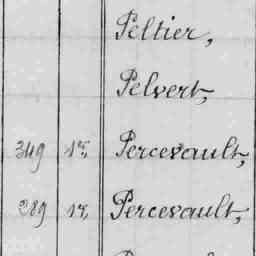 Peltier,
Pelvert,
349 15, Percevault,
289 15, Percevault,